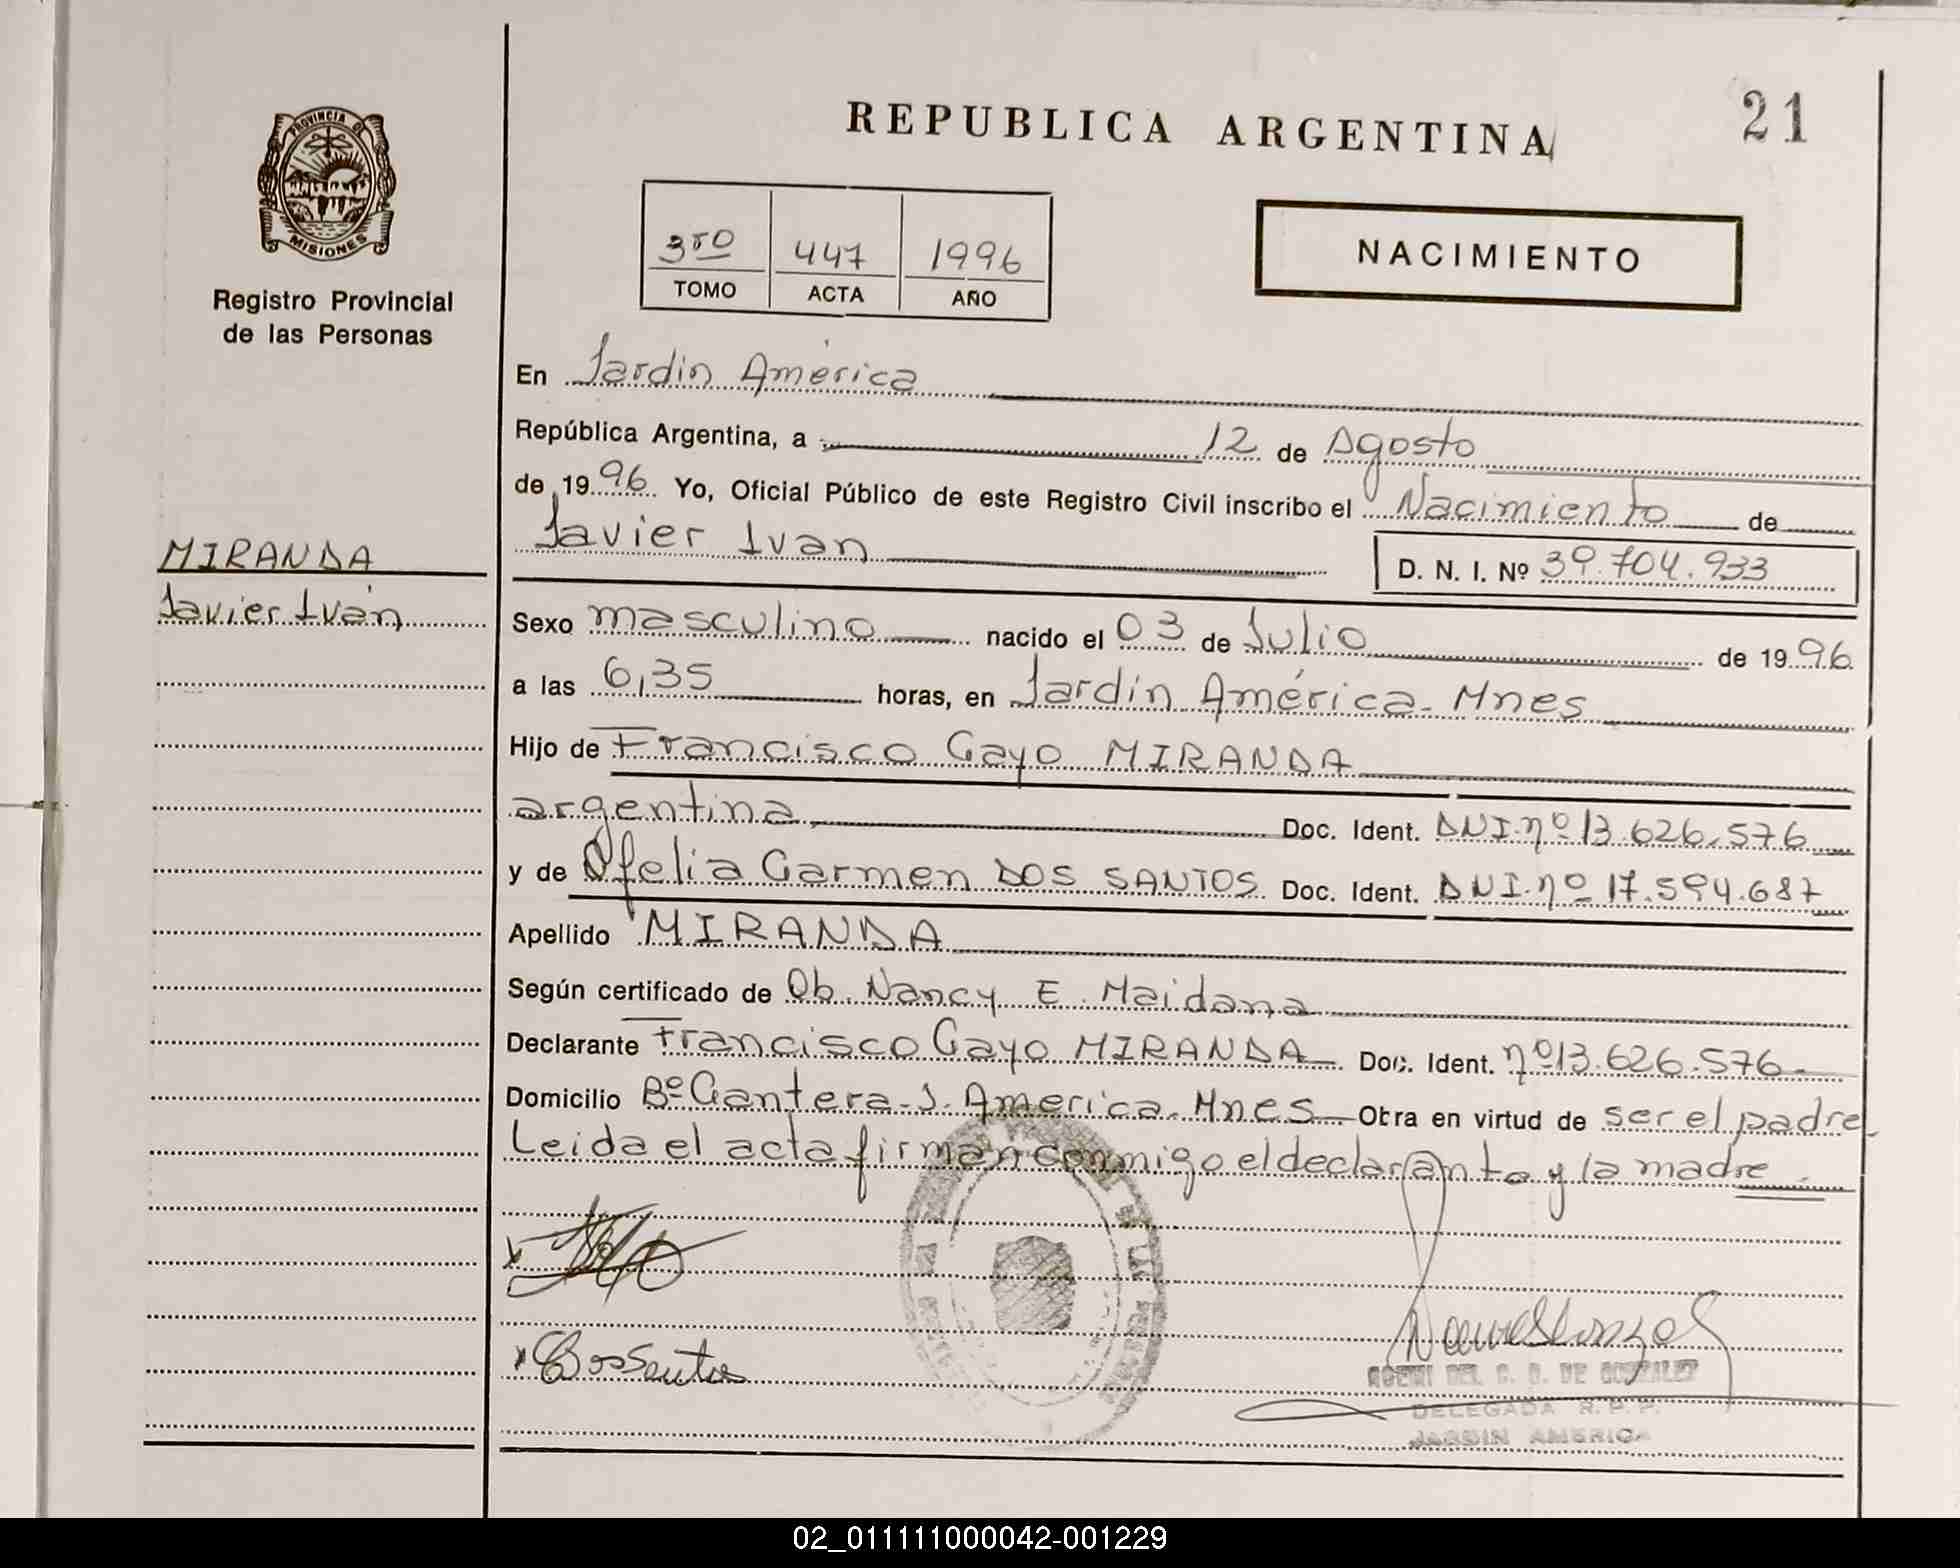 21
REPUBLICA ARGENTINA
PROVINCIA DE
MISIONES
Registro Provincial
de las Personas
3ro 447 1996
TOMO ACTA AÑO
NACIMIENTO
En Jardin América
República Argentina, a 12 de Agosto
de 1996 Yo, Oficial Público de este Registro Civil inscribo el Nacimiento de
Javier Ivan
D. N. I. Nº 39.704.933
MIRANDA
Javier Iván
Sexo masculino nacido el 03 de Julio de 1996
a las 6,35 horas, en Jardín América - Mnes
Hijo de Francisco Cayo MIRANDA
argentina Doc. Ident. DNI. nº 13.626.576
y de Ofelia Carmen DOS SANTOS Doc. Ident. DNI. nº 17.594.687
Apellido MIRANDA
Según certificado de Ob. Nancy E. Maidana
Declarante Francisco Cayo MIRANDA Doc. Ident. nº 13.626.576
Domicilio Bº Cantera - J. America - Mnes Obra en virtud de ser el padre.
Leida el acta firman conmigo el declarante y la madre
DosSantos
DEL C. D. DE GONZALEZ
DELEGADA R. P. P.
JARDIN AMERICA
02_011111000042-001229